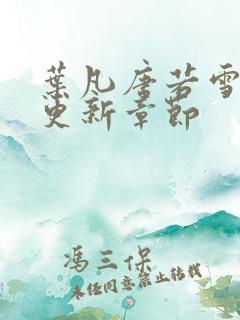 葉凡唐若雪
更新章節
馮三保
未经同意禁止转载